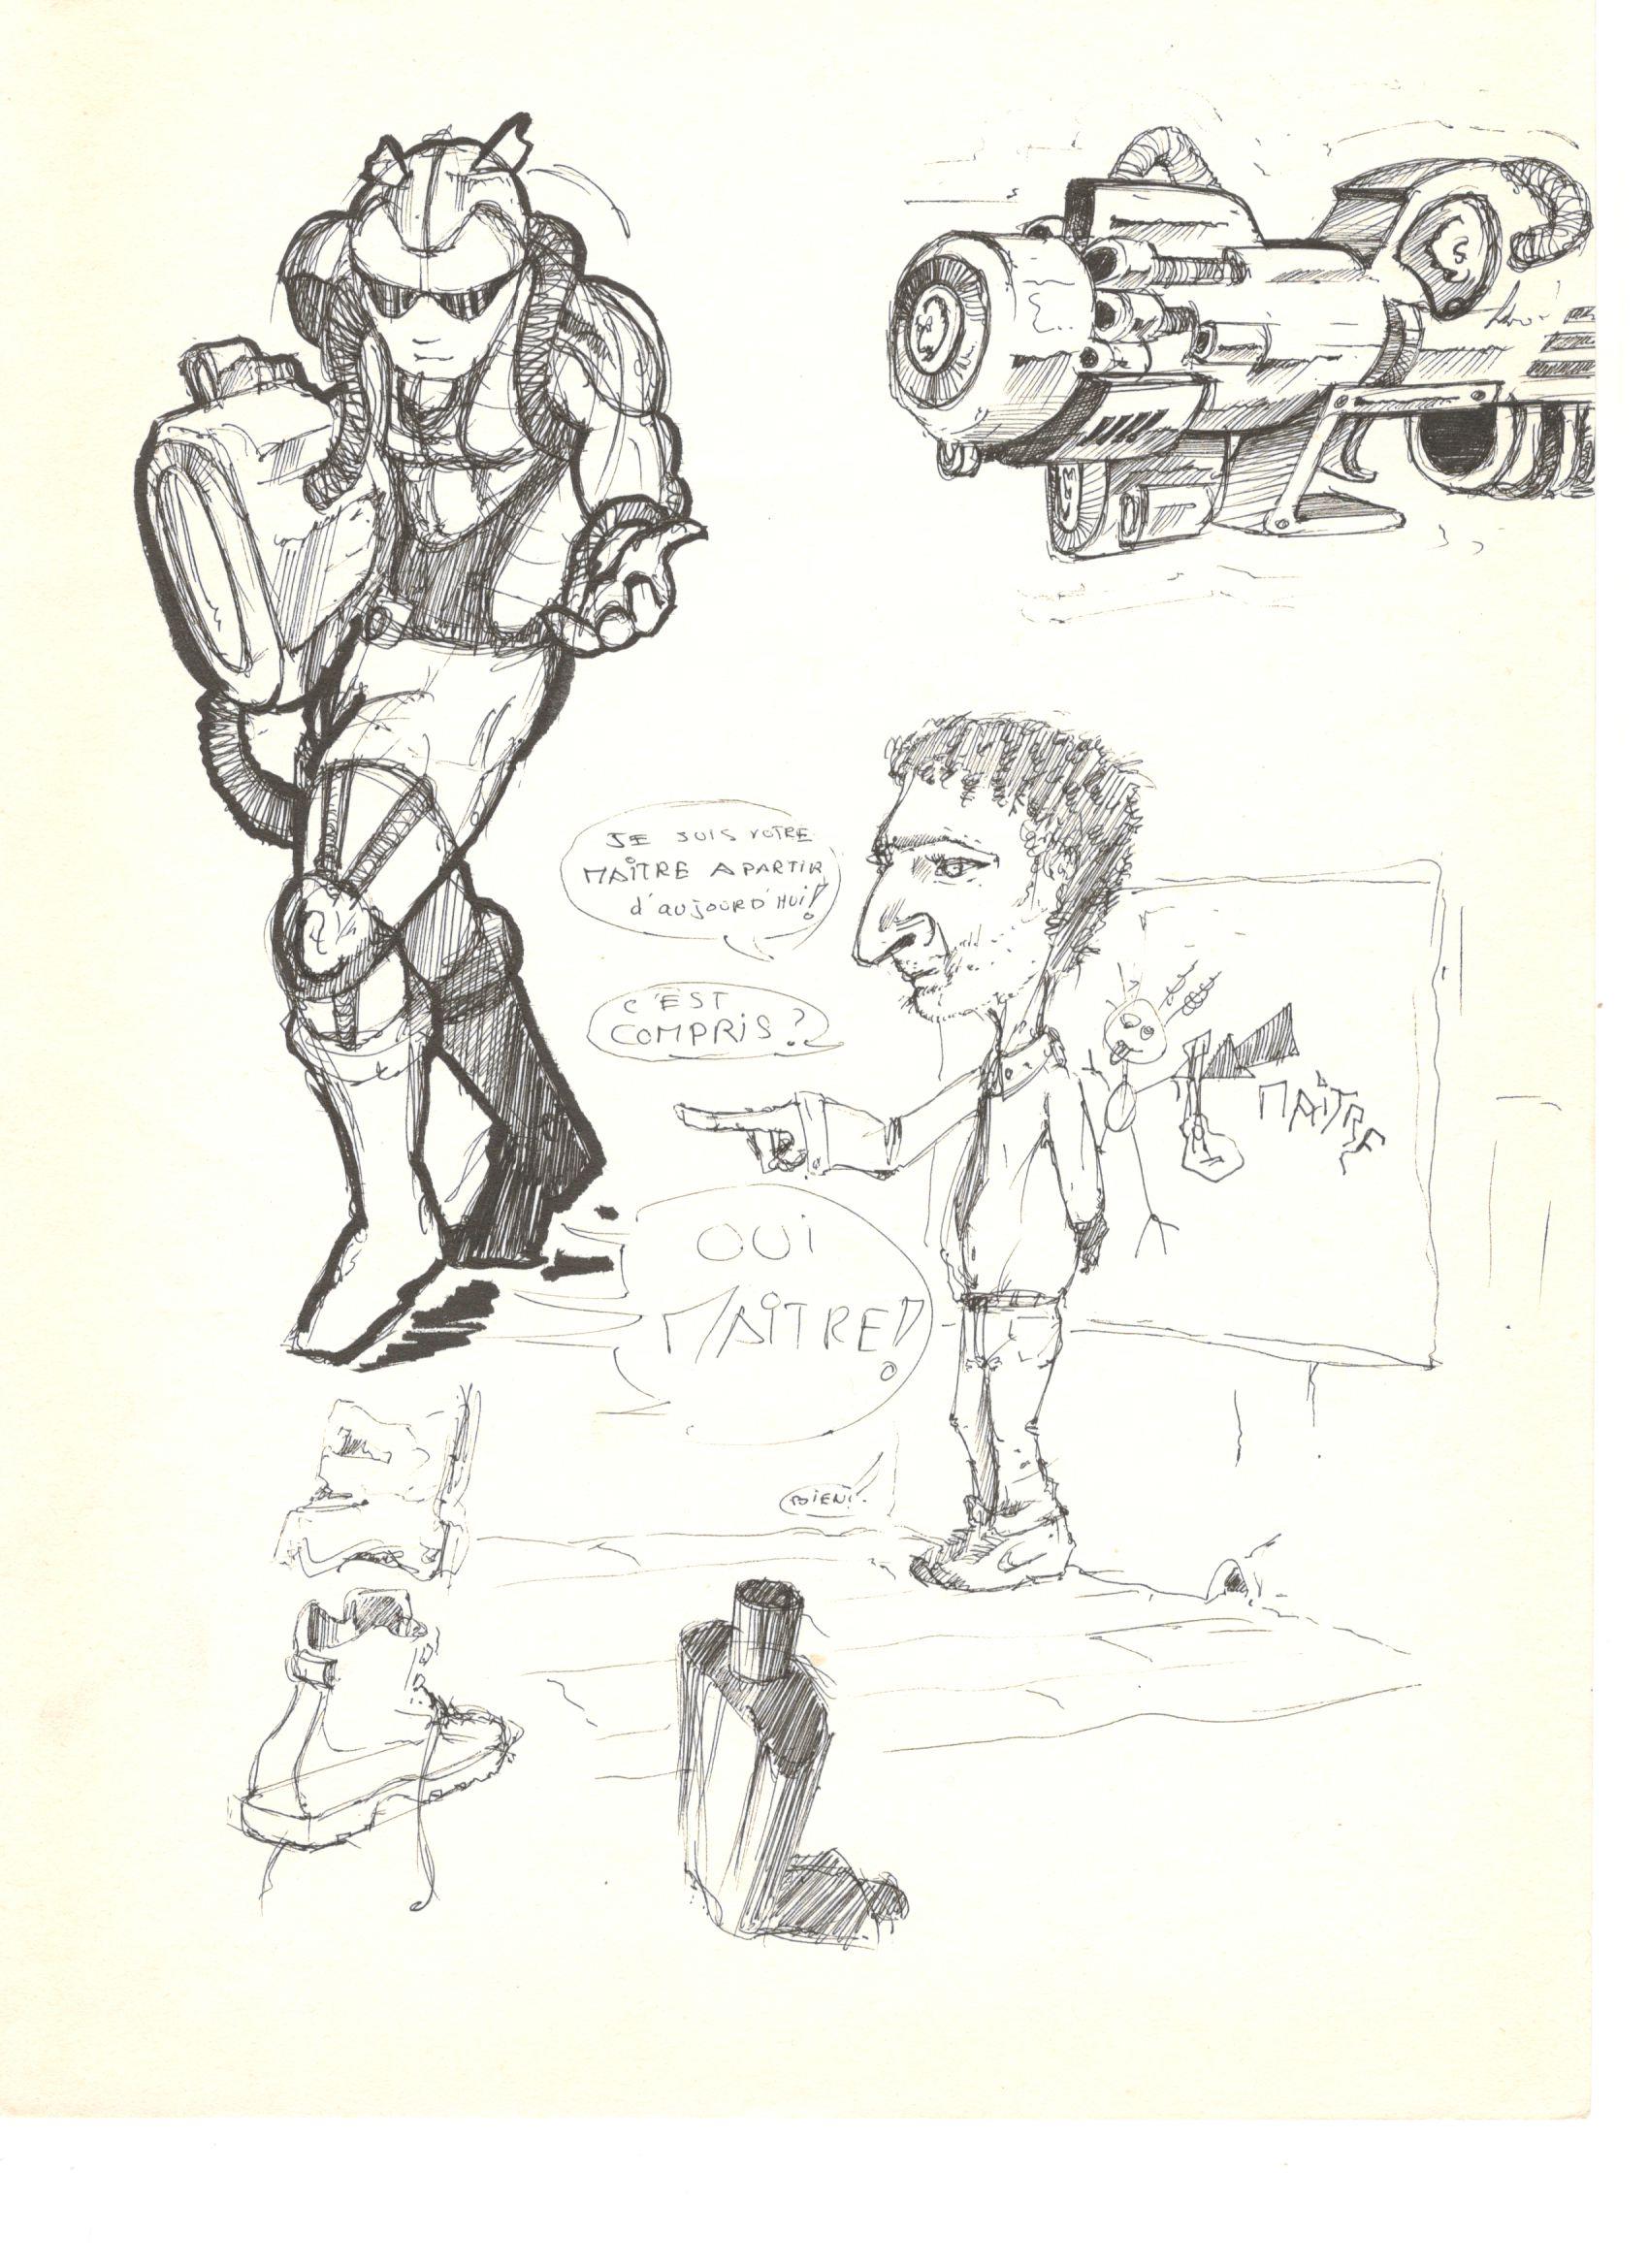 JE SUIS VOTRE
MAÎTRE A PARTIR
d'aujourd'HUi!
C'EST
COMPRIS?
MAÎTRE
OUi
MAÎTRE!
BiEN!